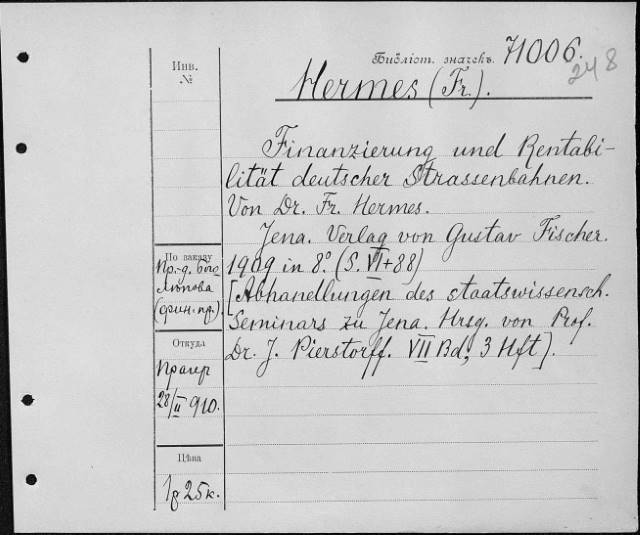 Библіот. значекъ. 71006.
248
Инв.
№
Hermes (Fr.).
Finanzierung und Rentabi-
lität deutscher Strassenbahnen.
Von Dr. Fr. Hermes.
Jena. Verlag von Gustav Fischer.
1909 in 8.° (S. VI+88)
[Abhandlungen des staatswissensch.
Seminars zu Jena. Hrsg. von Prof.
Dr. J. Pierstorff. VII Bd., 3 Hft].
По заказу
Пр.-д. Бого
лѣпова
(фин. пр.).
Откуда
Прагер
28/II 910.
Цѣна
1р 25к.